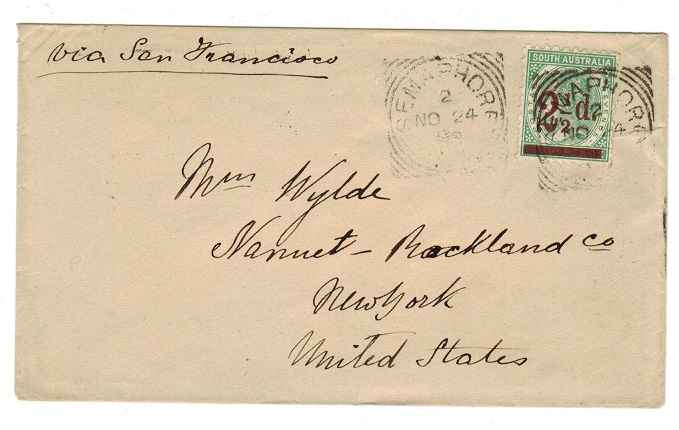 via San Francisco
SEMAPHORE
2
NO 24
SOUTH AUSTRALIA
2½d.
SEMAPHORE
2
NO 24
Mrs Wylde
Nanuet - Rockland Co
New York
United States